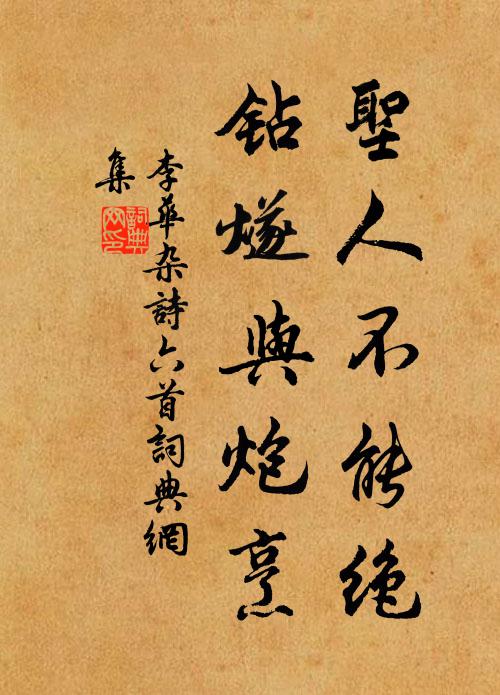 聖人不能絕
鉆燧與炮烹
李華雜詩六首詞典網
集
詞典
网印